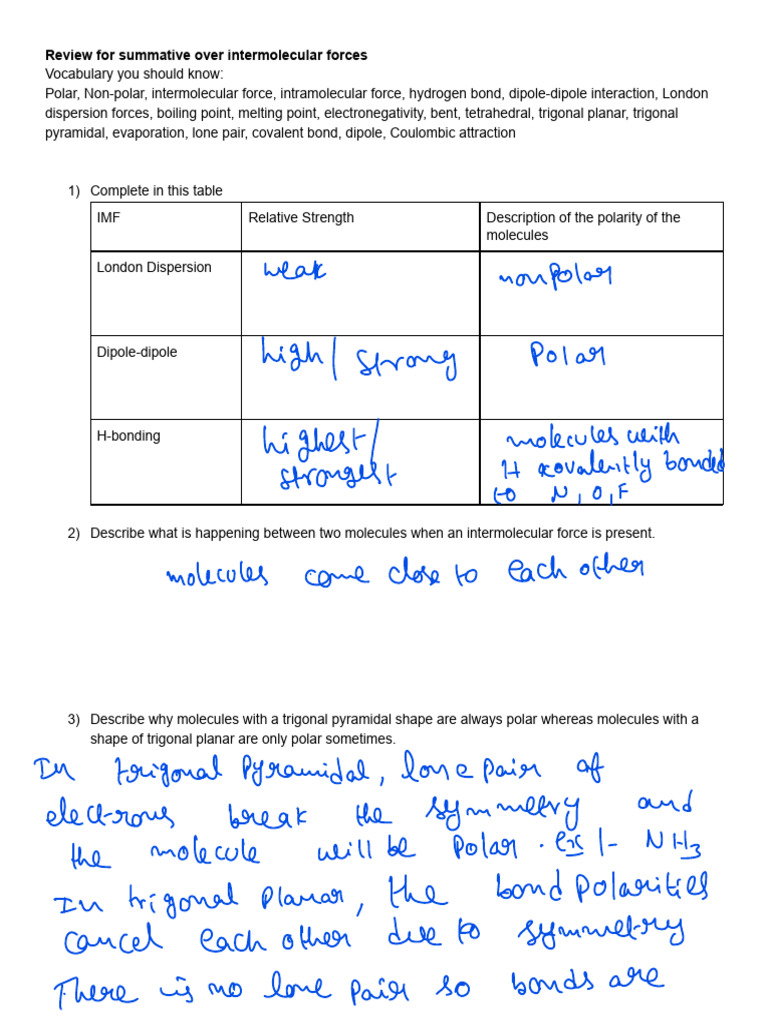 Review for summative over intermolecular forces
Vocabulary you should know:
Polar, Non-polar, intermolecular force, intramolecular force, hydrogen bond, dipole-dipole interaction, London
dispersion forces, boiling point, melting point, electronegativity, bent, tetrahedral, trigonal planar, trigonal
pyramidal, evaporation, lone pair, covalent bond, dipole, Coulombic attraction
1) Complete in this table
IMF Relative Strength Description of the polarity of the
molecules
London Dispersion weak nonpolar
Dipole-dipole high/strong Polar
H-bonding highest/ molecules with
strongest H covalently bonded
to N, O, F
2) Describe what is happening between two molecules when an intermolecular force is present.
molecules come close to each other
3) Describe why molecules with a trigonal pyramidal shape are always polar whereas molecules with a
shape of trigonal planar are only polar sometimes.
In trigonal Pyramidal, lone pair of
electrons break the symmetry and
the molecule will be Polar. ex :- NH3
In trigonal planar, the bond Polarities
cancel each other due to symmetry
There is no lone pair so bonds are